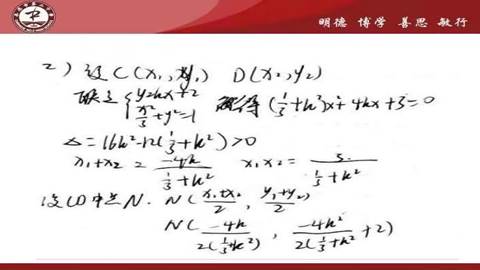 明德 博学 善思 敏行
2) 设C(x₁,y₁) D(x₂,y₂)
联立{y=kx+2
x²/3+y²=1 解得(1/3+k²)x²+4kx+3=0
Δ=16k²-12(1/3+k²)>0
x₁+x₂=-4k/(1/3+k²) x₁x₂=3/(1/3+k²)
设CD中点N. N(x₁+x₂/2, y₁+y₂/2)
N(-4k/2(1/3+k²), -4k²/2(1/3+k²)+2)